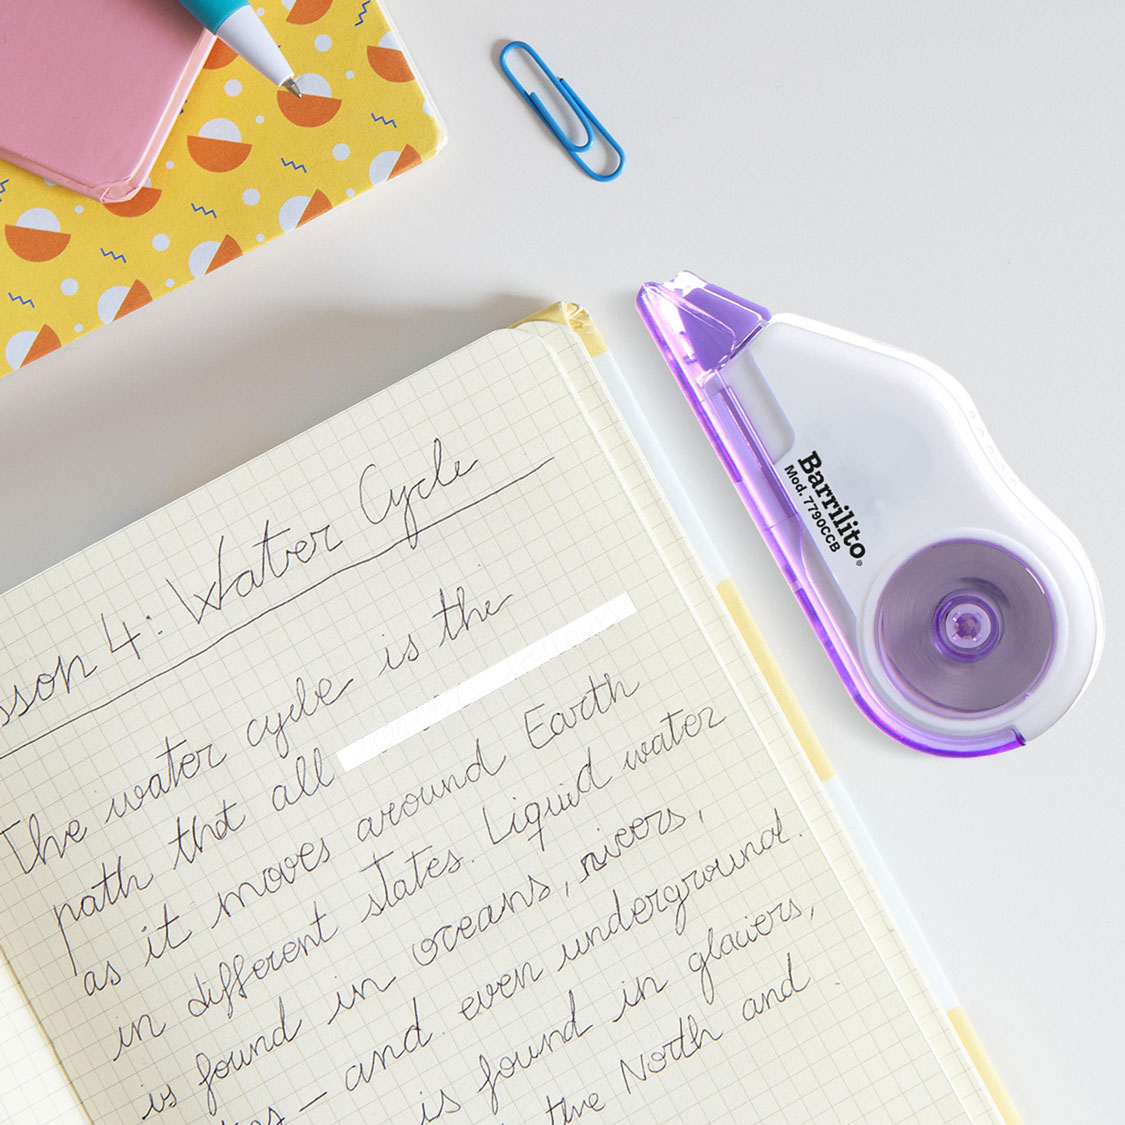 sson 4: Water Cycle
The water cycle is the
path that all
as it moves around Earth
in different states. Liquid water
is found in oceans, rivers,
– and even underground.
is found in glaciers,
the North and
Barrilito®
Mod. 7790CCB